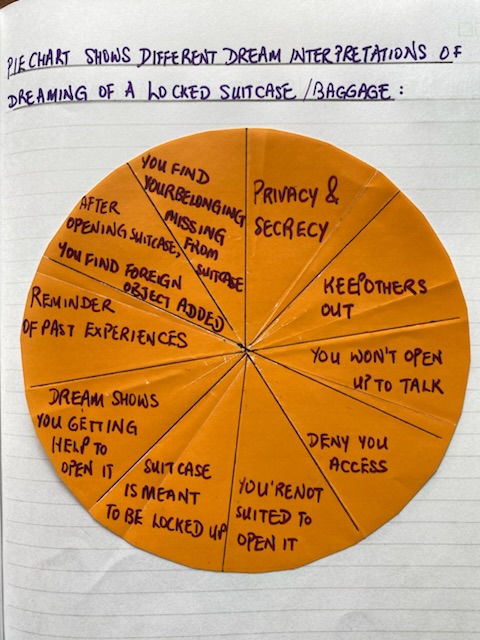 PIE CHART SHOWS DIFFERENT DREAM INTERPRETATIONS OF
DREAMING OF A LOCKED SUITCASE / BAGGAGE :
PRIVACY &
SECRECY
KEEP OTHERS
OUT
YOU WON'T OPEN
UP TO TALK
DENY YOU
ACCESS
YOU'RE NOT
SUITED TO
OPEN IT
SUITCASE
IS MEANT
TO BE LOCKED UP
DREAM SHOWS
YOU GETTING
HELP TO
OPEN IT
REMINDER
OF PAST EXPERIENCES
AFTER
OPENING SUITCASE,
YOU FIND FOREIGN
OBJECT ADDED
YOU FIND
YOUR BELONGING
MISSING
FROM
SUITCASE